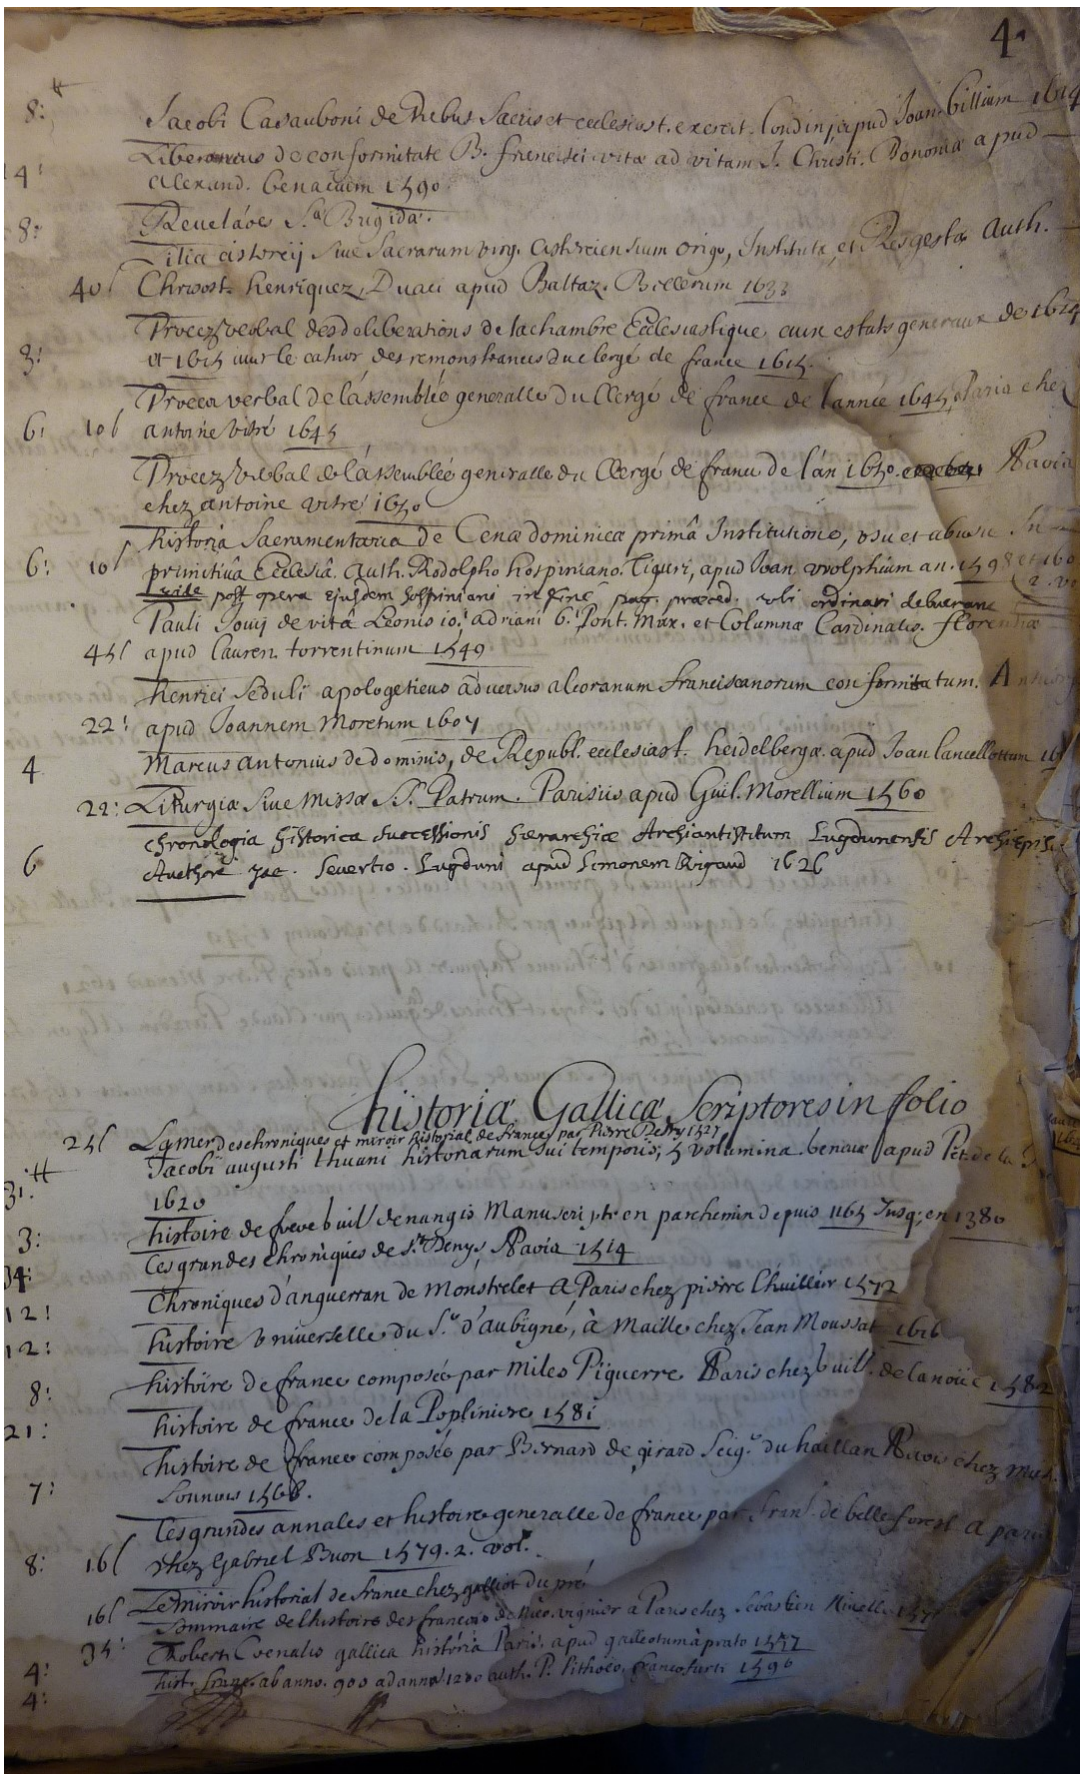 4.
8: Jacobi Casauboni de Rebus Sacris et ecclesiast. exercit. londinj apud Joan. billium 1614
14: Liber de conformitate B. francisci vitæ ad vitam J. Christi. Bononiæ apud
Alexand. benacium 1590.
8: Revelãoes S.ª Brigida.
Lilia cistercij sive Sacrarum virg. Cisterciensium origo, Instituta, et Resgestæ Auth.
40 s Chrisost. henriquez, Duaci apud Baltaz. Bellerum 1633
Procez verbal des deliberations de la chambre Ecclesiastique aux estats generaux de 1614
8: et 1615 sur le cahier des remonstrances du clergé de france 1615.
Procez verbal de l'assemblée generalle du Clergé de france de l'année 1645, Paris chez
6: 10 s antoine vitré 1645
Procez verbal de l'assemblée generalle du Clergé de france de l'an 1650. Paris
chez antoine vitré 1650
historia Sacramentaria de Cenæ dominicæ primâ Institutione, usu et abusu In
6: 10 s primitivâ Ecclesiâ. Auth. Rodolpho hospiniano. Tiguri, apud Joan wolphium an. 1598 et 160
vide post opera ejusdem hospiniani in fine pag. præced. ubi ordinari debuerant 2. vo
Pauli Jovij de vitâ Leonis io. adriani 6. Pont. Max. et Columnæ Cardinalis. florentiæ
45 s apud lauren. torrentinum 1549
henrici Seduli apologeticus adversus alcoranum franciscanorum conformitatum.
22: apud Joannem Moretum 1607
4 Marcus antonius de dominis, de Republ. ecclesiast. heidelbergæ apud Joan lancellottum
22: Liturgiæ Sive missæ S.S. Patrum. Parisiis apud Guil. Morellium 1560
Chronologia historica successionis hierarchicæ Archiantistitum Lugdunensis Archiepis.
6 Authore Jac. Severtio. Lugduni apud Simonem Rigaud 1626
historiæ Gallicæ Scriptores in folio
25 s La mer des chroniques et miroir historial de france par Pierre Desrey 1527
Jacobi augusti thuani historiarum sui temporis, 5 volumina. genevæ apud Pet. de la
31: 1620
3: histoire de frere Guill de nangis Manuscript en parchemin depuis 1165 Jusq; en 1380
34: les grandes chroniques de S.t Denys, A Paris 1514
12: Chroniques d'anguerran de monstrelet A Paris chez pierre l'huillier 1572
12: histoire universelle du S.r d'aubigné, à Maille chez Jean Moussat 1616
8: histoire de france composée par miles Piguerre A Paris chez Guill. de la noüe 1582
21: histoire de france de la Popliniere 1581
histoire de france composée par Bernard de girard Seig.r du haillan A Paris chez
7: Sonnius 1568.
les grandes annales et histoire generalle de france par fran. de belleforest A paris
8: 16 s chez Gabriel Buon 1579. 2. vol.
Le miroir historial de france chez galliot du pré
16 s Sommaire de l'histoire des francois de Nico. vignier a Paris chez Sebastien Nivelle
35: Roberti Cenalis gallica história Paris. apud galleotum à prato 1557
4: hist. franc. ab anno. 900 ad anno 1200 auth. P. Pithœo. francofurti 1596
4: